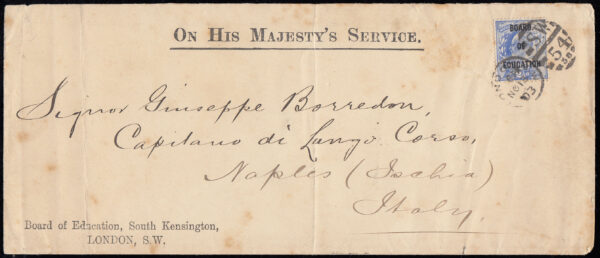 ON HIS MAJESTY'S SERVICE.
BOARD
OF
EDUCATION
S.W.
54
03
Signor Giuseppe Borredon,
Capitano di Lungo Corso,
Naples (Ischia)
Italy.
Board of Education, South Kensington,
LONDON, S.W.